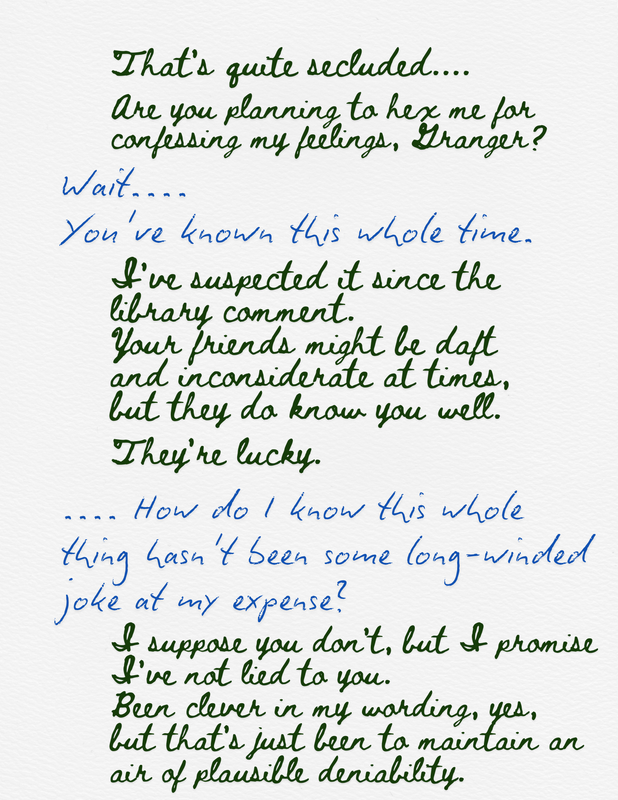 That's quite secluded....
Are you planning to hex me for
confessing my feelings, Granger?
Wait....
You've known this whole time.
I've suspected it since the
library comment.
Your friends might be daft
and inconsiderate at times,
but they do know you well.
They're lucky.
.... How do I know this whole
thing hasn't been some long-winded
joke at my expense?
I suppose you don't, but I promise
I've not lied to you.
Been clever in my wording, yes,
but that's just been to maintain an
air of plausible deniability.